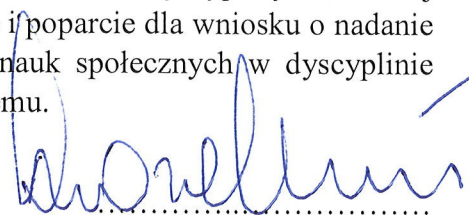 i poparcie dla wniosku o nadanie
nauk społecznych w dyscyplinie
mu.